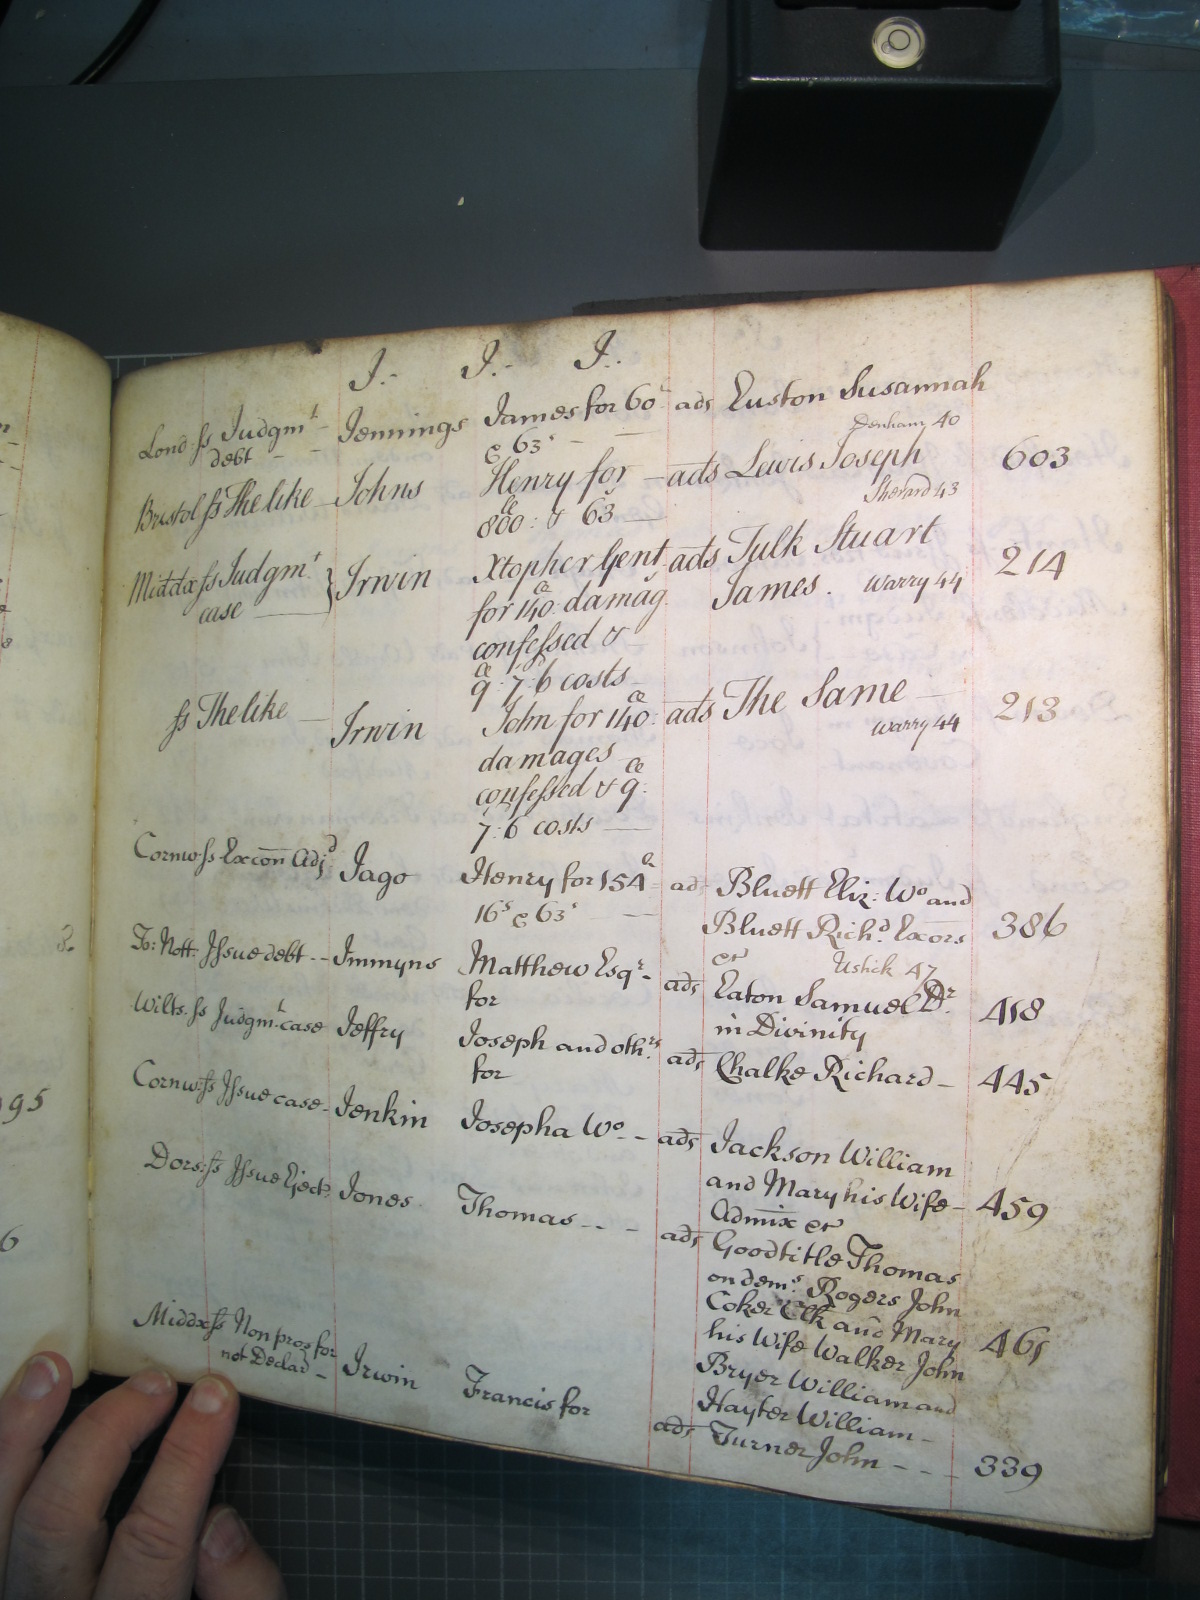 J.- J.- J..
Lond. ss Judgmt Jennings James for 60£ ads Euston Susannah
debt - - & 63s - - Denham 40
Bristol ss The like - Johns Henry for - ads Lewis Joseph 603
800£: & 63s Sherard 43
Middx ss Judgmt } Irwin Xtopher Gent ads Tulk Stuart 214
case for 140£: damag James. Warry 44
confessed &
9£: 7: 6 costs
ss The like - Irwin John for 140£: ads The Same - 213
damages Warry 44
confessed & 9£:
7: 6 costs -
Cornw. ss Excon Adjd Jago Henry for 154£ ads Bluett Eliz: Wo and
16s & 63s - Bluett Richd. Excors 386
er Ustick 47
To: Nott. Issue debt - - Immyns Matthew Esqr - ads Eaton Samuel Dr. 418
for in Divinity
Wilts. ss Judgmt case Jeffry Joseph and othrs ads Chalke Richard - 445
for
Cornw. ss Issue case - Jenkin Josepha Wo. - ads Jackson William
and Mary his Wife - 459
Admix er
Dors. ss Issue Eject. Jones Thomas - - - ads Goodtitle Thomas
on dems. Rogers John
Coker Clk and Mary 461
his Wife Walker John
Bryer William and
Hayter William -
Middx ss Non pros for Irwin Francis for ads Turner John - - - 339
not Declar -
3.
95
6